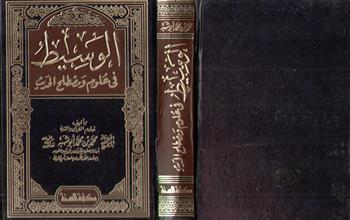 الوسيط
في علوم ومصطلح الحديث
تأليف
محمد بن محمد أبو شهبة
مكتبة السنة
محمد بن محمد أبو شهبة
الوسيط
في علوم ومصطلح الحديث
مكتبة السنة